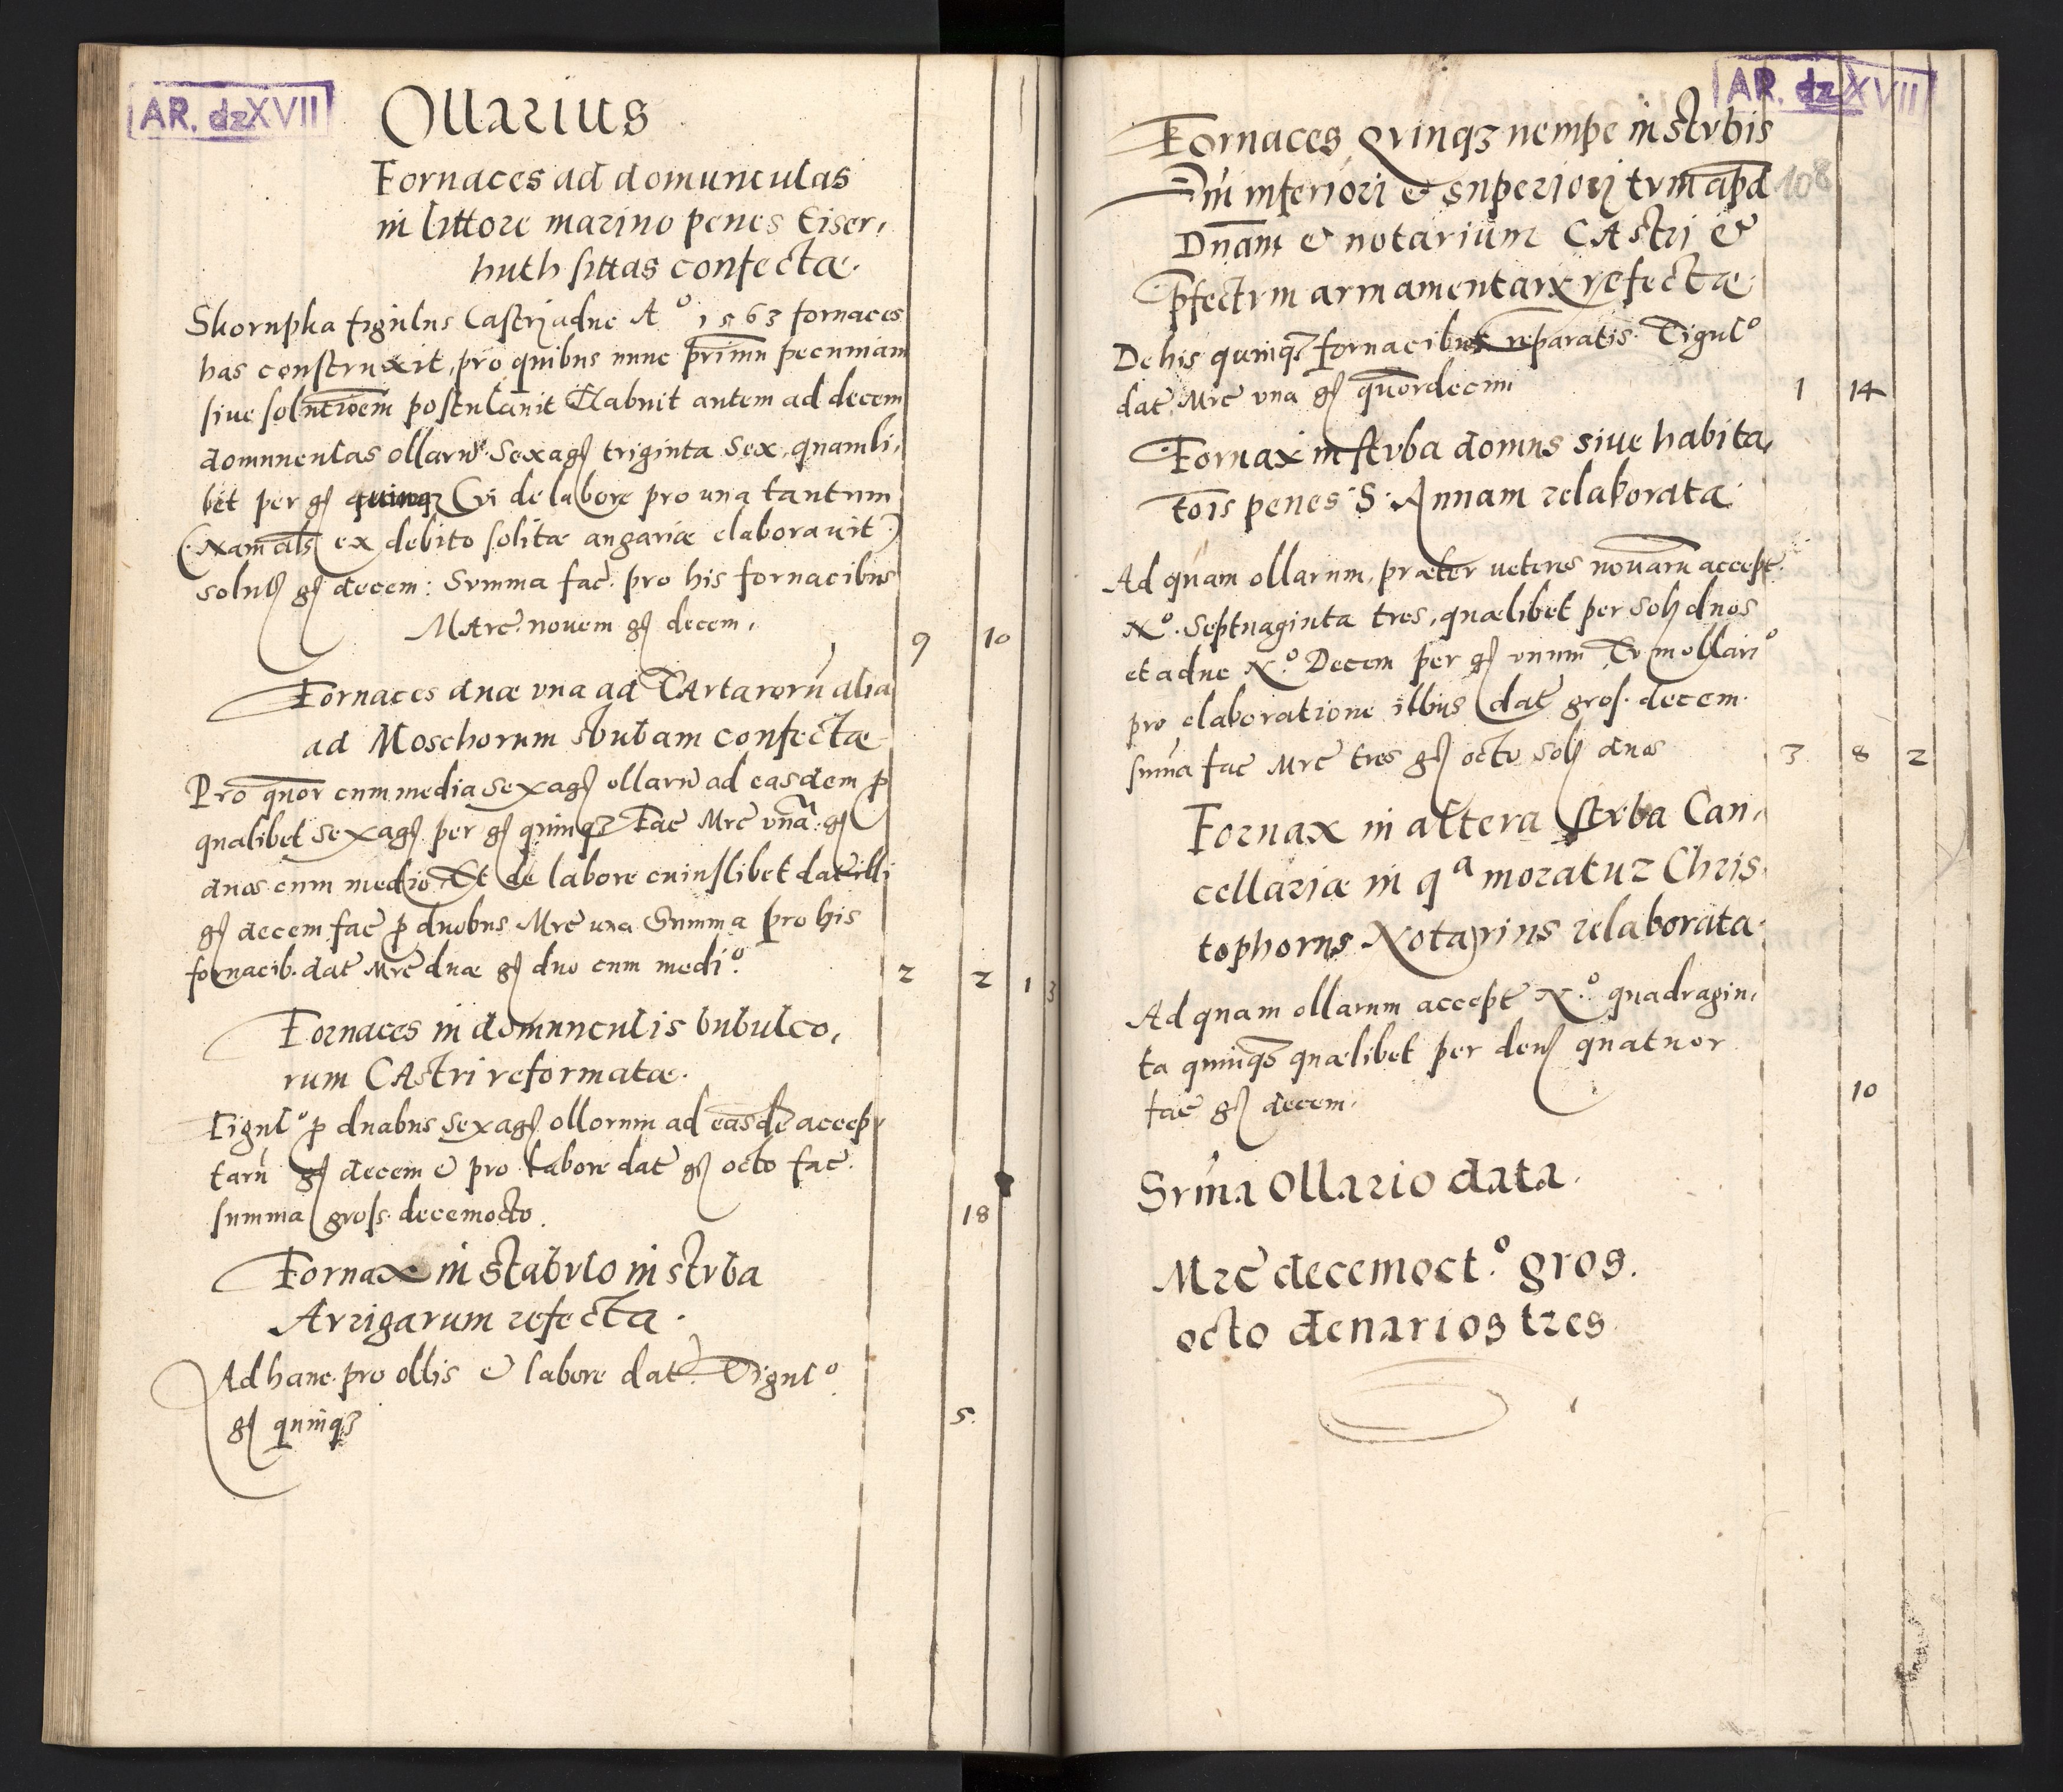 AR. dz XVII
Ollarius
Fornaces ad domunculas
in littore marino penes Eiser,
huth sittas confectæ.
Skorupka figulus Castri adue Aº 1563 fornaces
has construxit, pro quibus nunc primū pecuniam
siue solutioem postulauit Habuit autem ad decem
domunculas ollarū Sexagς triginta Sex, quamli,
bet per gς quinqȝ Cui de labore pro una tantum
(Nam als ex debito solitæ angariæ elaborauit)
solutς gς decem: Summa fac. pro his fornacibus
MArc. nouem gς decem, 9 10
Fornaces duæ vna ad TArtarorū alia
ad Moschorum stubam confectæ
Pro quor cum media Sexagς ollarū ad easdem p
qualibet Sexagς per gς quinqȝ Fac Mrc vnā gς
duos cum medio Et de labore cuiuslibet dat illi
gς decem fac p duobus Mrc una Summa pro his
fornacib. dat Mrc duæ gς duo cum mediº. 2 2 1 3
Fornaces in domunculis bubulco,
rum CAstri reformatæ.
Figulº p duabus Sexagς ollorum ad easdē accep,
tarū gς decem & pro labore dat gς octo fac.
summa gross. decemocto. 18
Fornax in stabulo in stuba
Aurigarum refecta.
Ad hanc pro ollis & labore dat Figulº
gς quinqȝ 5.
AR. dz XVII
Fornaces Quinqȝ nempe in stubis
Dni inferiori & superiori tvm apd 108
Dnam & notarium CAstri &
Pfectvm armamentarx refectæ
De his quinqȝ fornacibus reparatis. Figulº
dat Mrc vna gς quordecim 1 14
Fornax in stuba domus siue habita,
tois penes S. Annam relaborata.
Ad quam ollarum, præter veteres nouarū accept.
Nº. Septuaginta tres, quælibet per Solς duos
et adue Nº. Decem per gς vnum Tvm ollariº
pro elaboratione illius dat gros. decem.
suma fac Mrc tres gς octo Solς duos 3 8 2
Fornax in altera stvba Can,
cellariæ in qª moratur Chris
tophorus Notarius relaborata.
Ad quam ollarum accept Nº. quadragin,
ta quinqȝ quælibet per denς quatuor
fac gς decem. 10
Svma Ollario data.
Mrc decemoct.º gros.
octo denarios tres